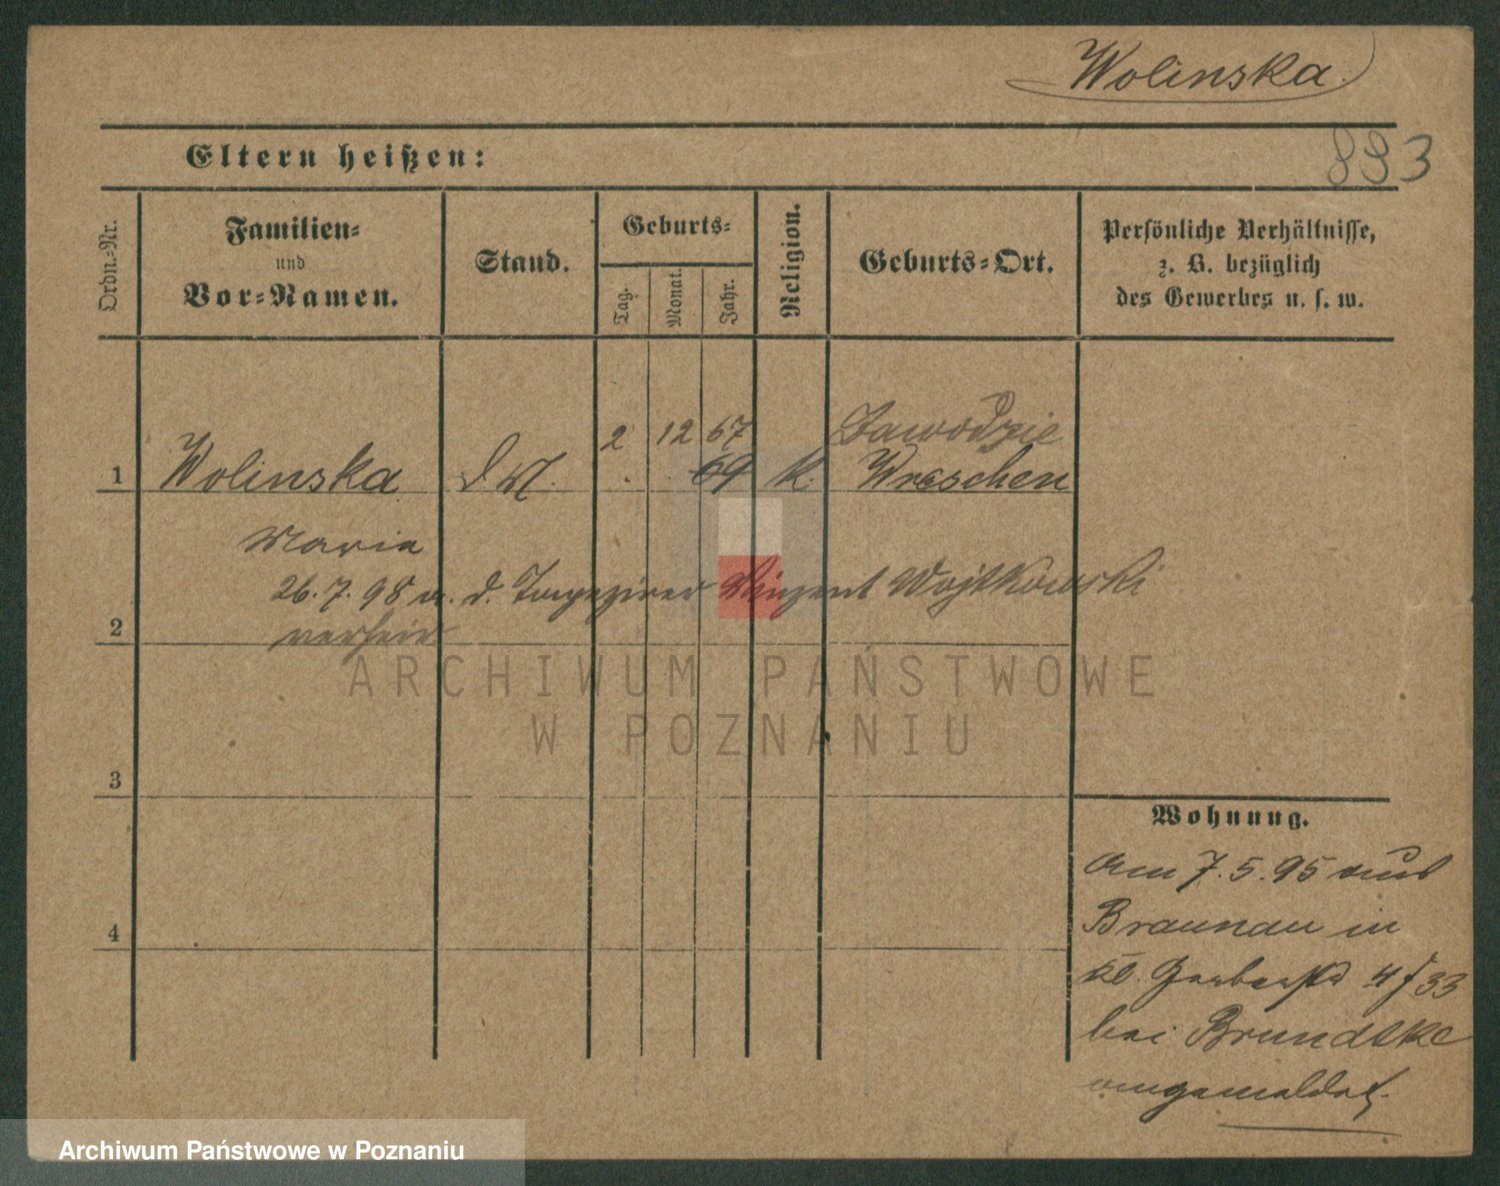 Wolinska
893
Eltern heißen:
Ordn.-Nr.
Familien-
und
Vor-Namen.
Stand.
Geburts-
Tag.
Monat.
Jahr.
Religion.
Geburts-Ort.
Persönliche Verhältnisse,
z. B. bezüglich
des Gewerbes u. s. w.
2 12 67 Zawodzie
1 Wolinska d. M. 69 k. Wreschen
Maria
26.7.98 m. d. Tapezirer Vinzent Wojtkowski
2 verheir
ARCHIWUM PAŃSTWOWE
W POZNANIU
3
Wohnung.
Am 7.5.95 aus
4
Braunau in
Kl. Gerberstr 4 f 33
bei Brundtke
angemeldet.
Archiwum Państwowe w Poznaniu